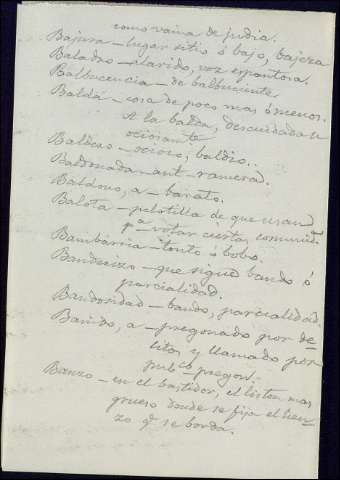 como vaina de judia.
Bajura – lugar sitio ó bajo, bajeza
Baladro – alarido, voz espantosa.
Balbucencia – de balbuciente
Balda – cosa de poco mas ó menos.
A la balda, descuidada u
ociosamte
Baldero – ocioso, baldio..
Baldonada – ant. ramera.
Baldono, a – barato.
Balota – pelotilla de que usan
pa votar ciertas comunid.
Bambarria – tonto ó bobo.
Banderizo – que sigue bando ó
parcialidad.
Bandosidad – bando, parcialidad.
Banido, a – pregonado por de-
litos y llamado por
pubco pregon.
Banzo – en el bastidor, el liston mas
grueso donde se fija el lien-
zo q. se borda.